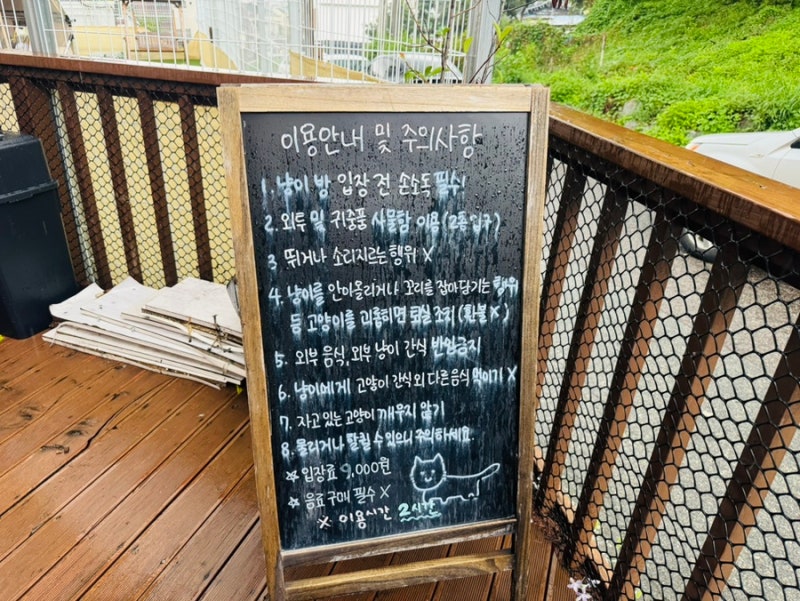 이용안내 및 주의사항
1. 냥이 방 입장 전 손소독 필수!
2. 외투 및 귀중품 사물함 이용 (2층 입구)
3 뛰거나 소리지르는 행위 X
4. 냥이를 안아올리거나 꼬리를 잡아당기는 행위
등 고양이를 괴롭히면 퇴실 조치 (환불 X)
5. 외부 음식, 외부 냥이 간식 반입금지
6. 냥이에게 고양이 간식 외 다른 음식 먹이기 X
7. 자고 있는 고양이 깨우지 않기
8. 물리거나 할퀼 수 있으니 주의하세요.
☆ 입장료 9,000원
☆ 음료 구매 필수 X
※ 이용시간 2시간